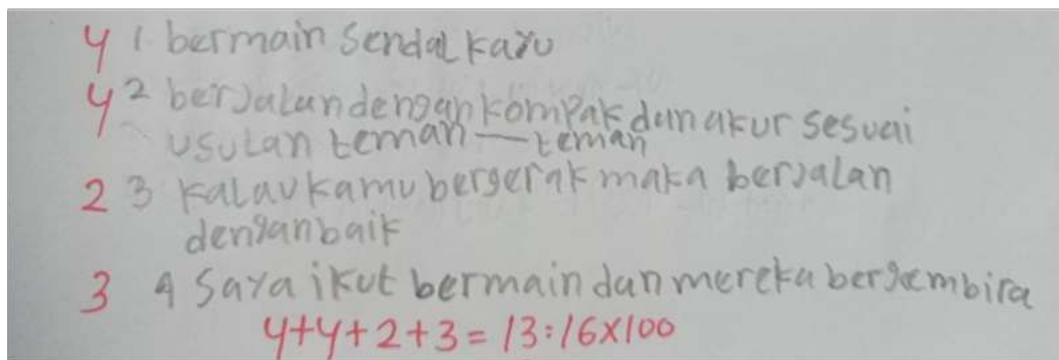 4 1. bermain sendal kayu
4 2 berjalan dengan kompak dan akur sesuai
usulan teman - teman
2 3 kalau kamu bergerak maka berjalan
dengan baik
3 4 saya ikut bermain dan mereka bergembira
4+4+2+3 = 13:16x100